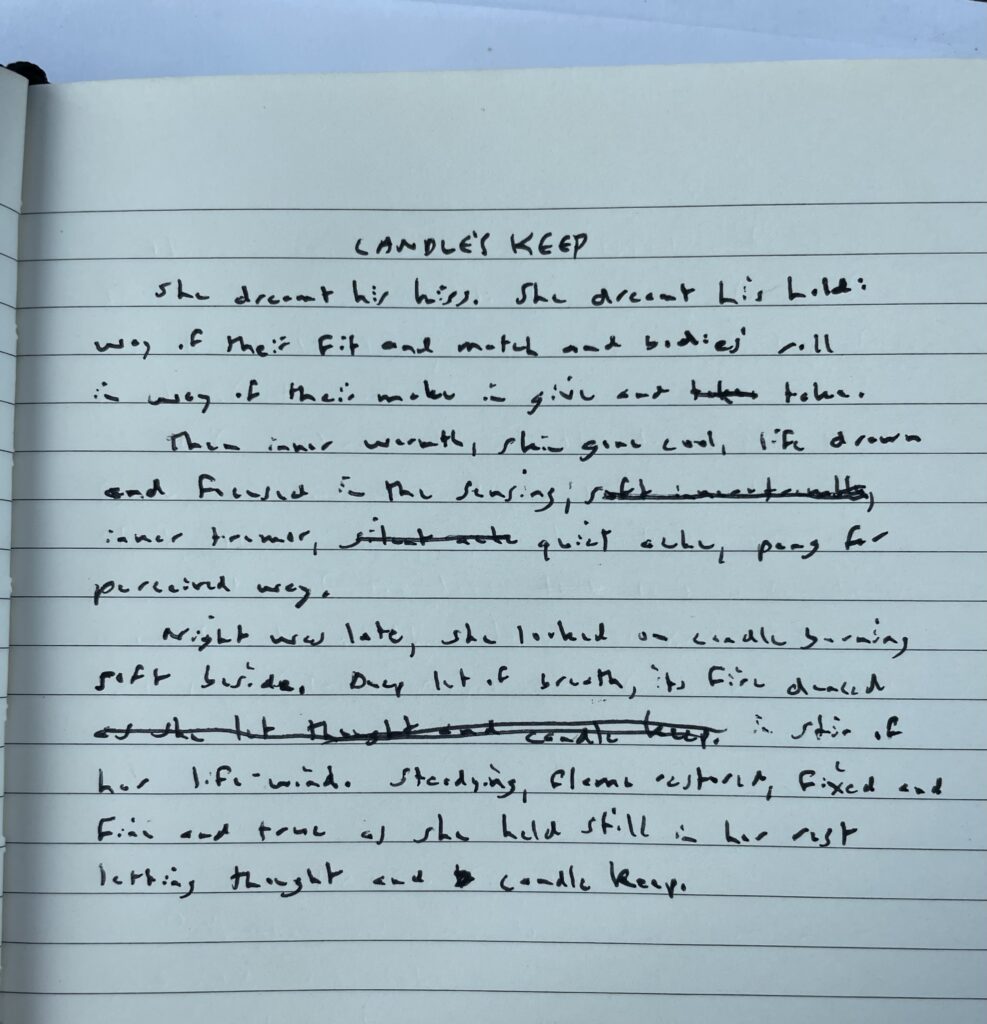 CANDLE'S KEEP
She dreamt his kiss. She dreamt his hold:
way of their fit and match and bodies' roll
in way of their make in give and take.
Then inner warmth, skin gone cool, life drawn
and focused in the sensing; soft inner tremble,
inner tremor, silent ache quiet ache, pang for
perceived way.
Night was late, she looked on candle burning
soft beside. Deep let of breath, its fire danced
as she let thought and candle keep. in stir of
her life-wind. Steadying, flame restored, fixed and
fine and true as she held still in her rest
letting thought and candle keep.